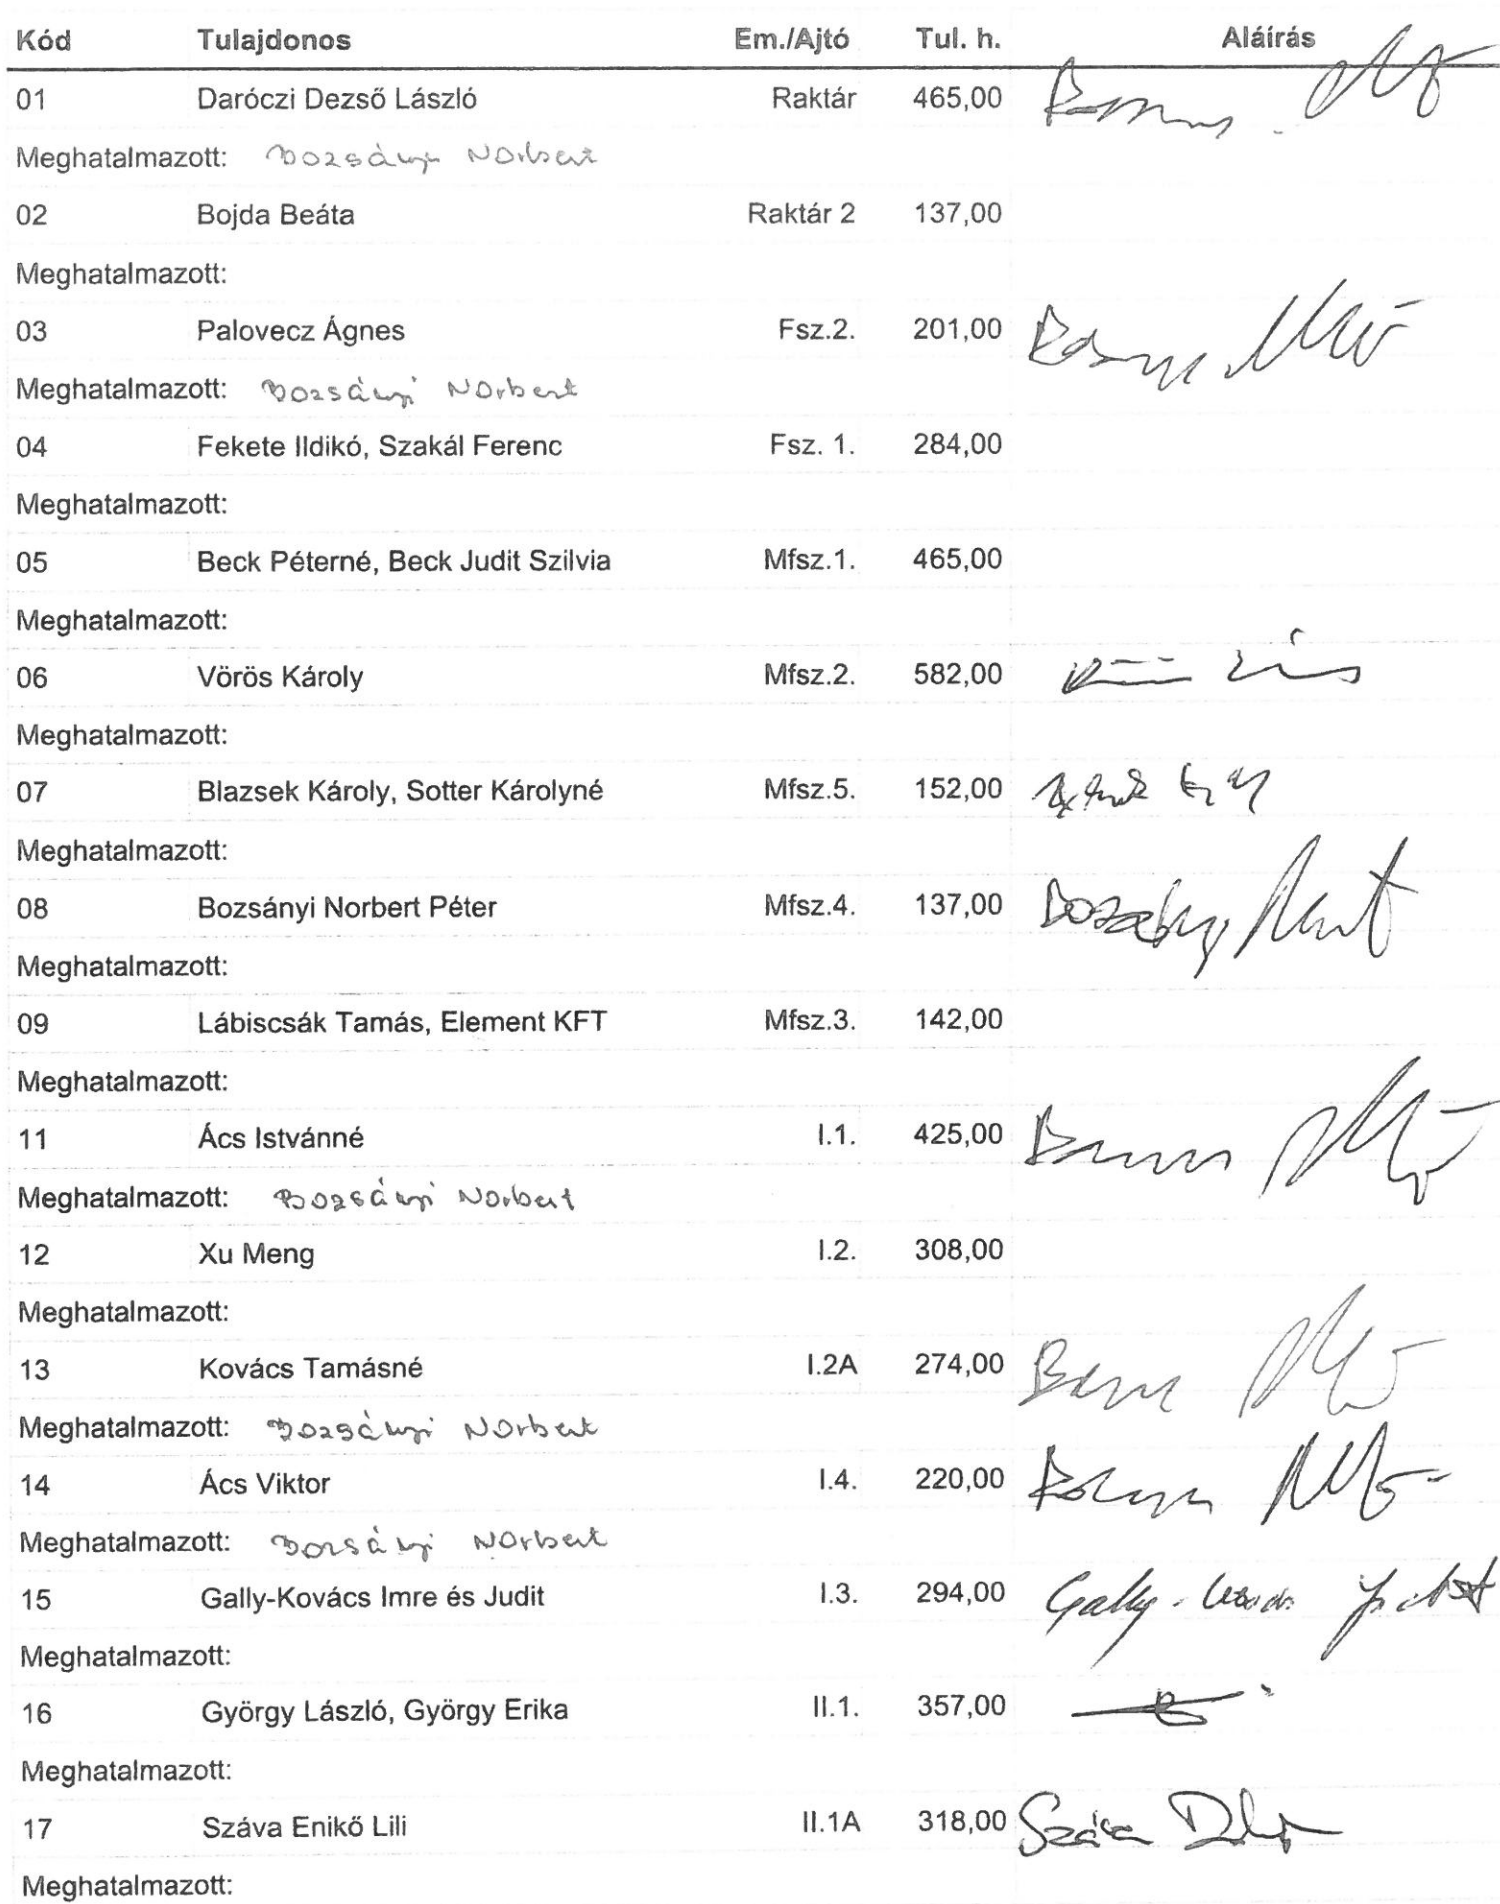 Kód Tulajdonos Em./Ajtó Tul. h. Aláírás
01 Daróczi Dezső László Raktár 465,00
Meghatalmazott: Bozsányi Norbert
02 Bojda Beáta Raktár 2 137,00
Meghatalmazott:
03 Palovecz Ágnes Fsz.2. 201,00
Meghatalmazott: Bozsányi Norbert
04 Fekete Ildikó, Szakál Ferenc Fsz. 1. 284,00
Meghatalmazott:
05 Beck Péterné, Beck Judit Szilvia Mfsz.1. 465,00
Meghatalmazott:
06 Vörös Károly Mfsz.2. 582,00
Meghatalmazott:
07 Blazsek Károly, Sotter Károlyné Mfsz.5. 152,00
Meghatalmazott:
08 Bozsányi Norbert Péter Mfsz.4. 137,00
Meghatalmazott:
09 Lábiscsák Tamás, Element KFT Mfsz.3. 142,00
Meghatalmazott:
11 Ács Istvánné I.1. 425,00
Meghatalmazott: Bozsányi Norbert
12 Xu Meng I.2. 308,00
Meghatalmazott:
13 Kovács Tamásné I.2A 274,00
Meghatalmazott: Bozsányi Norbert
14 Ács Viktor I.4. 220,00
Meghatalmazott: Bozsányi Norbert
15 Gally-Kovács Imre és Judit I.3. 294,00 Gally-Kovács Judit
Meghatalmazott:
16 György László, György Erika II.1. 357,00
Meghatalmazott:
17 Száva Enikő Lili II.1A 318,00 Száva
Meghatalmazott: